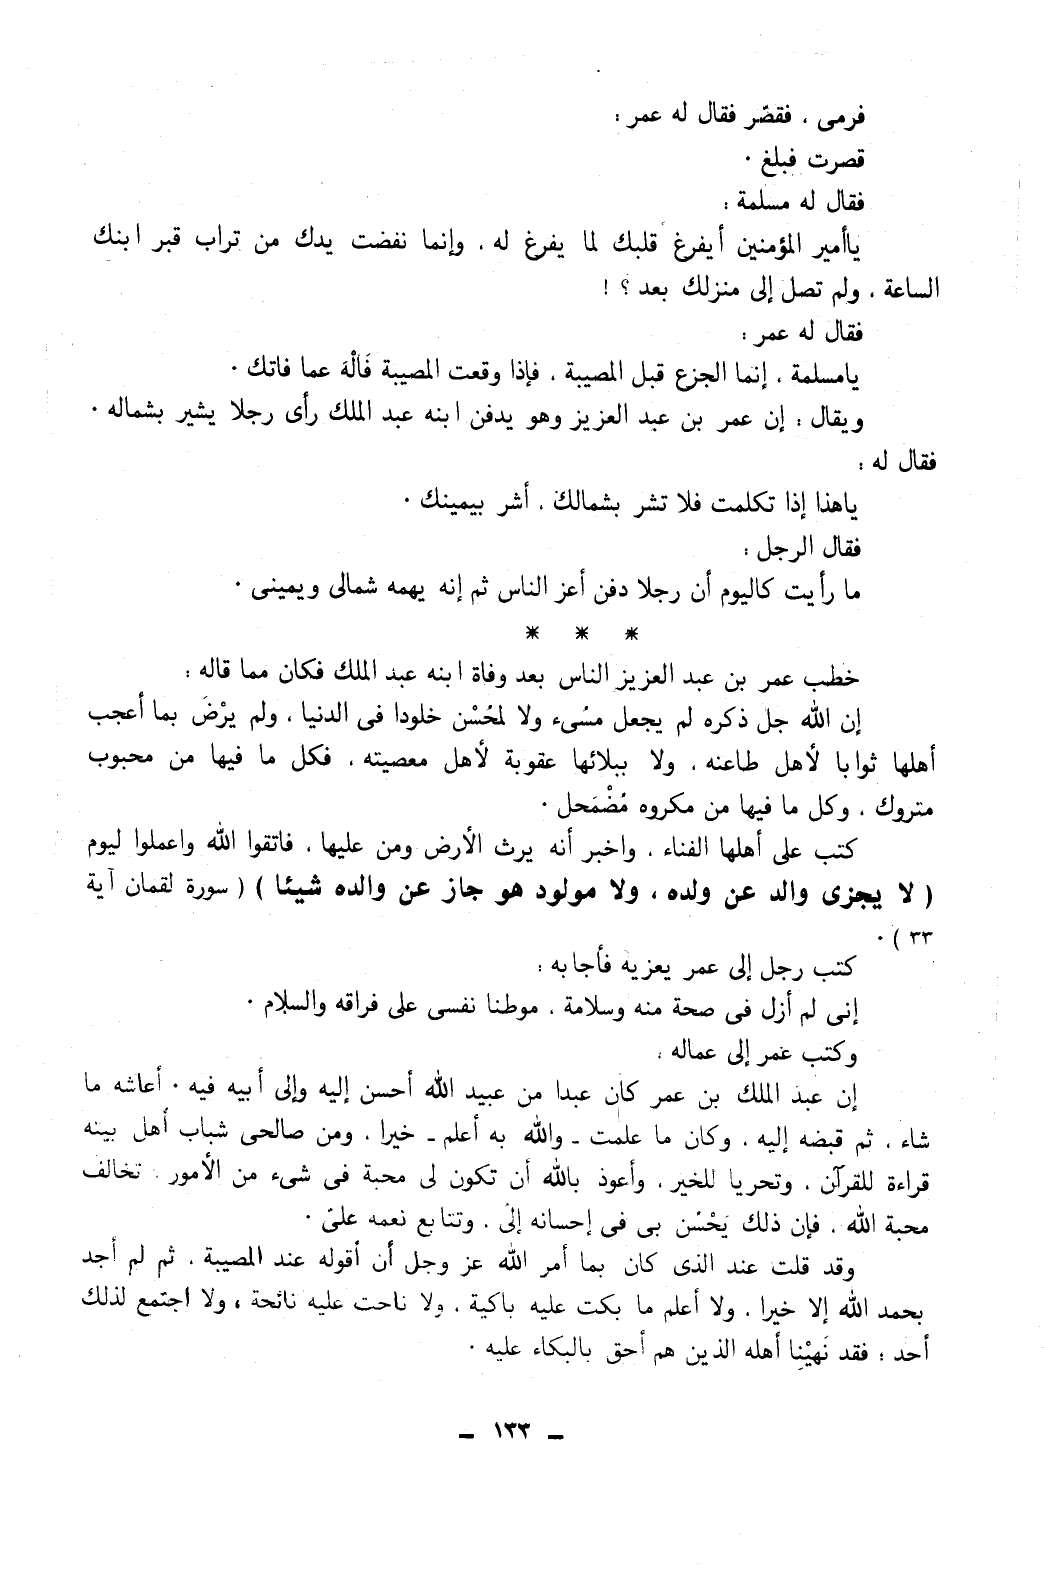 فرمى ، فقصّر فقال له عمر :
قصرت فبلغ .
فقال له مسلمة :
ياأمير المؤمنين أيفرغ قلبك لما يفرغ له ، وإنما نفضت يدك من تراب قبر ابنك
الساعة ، ولم تصل إلى منزلك بعد ؟ !
فقال له عمر :
يامسلمة ، إنما الجزع قبل المصيبة ، فإذا وقعت المصيبة فَالْهَ عما فاتك .
ويقال : إن عمر بن عبد العزيز وهو يدفن ابنه عبد الملك رأى رجلا يشير بشماله .
فقال له :
ياهذا إذا تكلمت فلا تشر بشمالك ، أشر بيمينك .
فقال الرجل :
ما رأيت كاليوم أن رجلا دفن أعز الناس ثم إنه يهمه شمالى ويمينى .
* * *
خطب عمر بن عبد العزيز الناس بعد وفاة ابنه عبد الملك فكان مما قاله :
إن الله جل ذكره لم يجعل مسُىء ولا لمحُسْن خلودا فى الدنيا ، ولم يرْضَ بما أعجب
أهلها ثوابا لأهل طاعنه ، ولا ببلائها عقوبة لأهل معصيته ، فكل ما فيها من محبوب
متروك ، وكل ما فيها من مكروه مُضْمَحل .
كتب على أهلها الفناء ، واخبر أنه يرث الأرض ومن عليها ، فاتقوا الله واعملوا ليوم
( لا يجزى والد عن ولده ، ولا مولود هو جاز عن والده شيئا ) ( سورة لقمان آية
٣٣ ) .
كتب رجل إلى عمر يعزيه فأجابه :
إنى لم أزل فى صحة منه وسلامة ، موطنا نفسى على فراقه والسلام .
وكتب عمر إلى عماله :
إن عبد الملك بن عمر كان عبدا من عبيد الله أحسن إليه وإلى أبيه فيه . أعاشه ما
شاء ، ثم قبضه إليه ، وكان ما علمت ـ والله به أعلم ـ خيرا ، ومن صالحى شباب أهل بيته
قراءة للقرآن ، وتحريا للخير ، وأعوذ بالله أن تكون لى محبة فى شىء من الأمور ، تخالف
محبة الله ، فإن ذلك يَحْسُن بى فى إحسانه إلىَ ، وتتابع نعمه علىّ .
وقد قلت عند الذى كان بما أمر الله عز وجل أن أقوله عند المصيبة ، ثم لم أجد
بحمد الله إلا خيرا ، ولا أعلم ما بكت عليه باكية ، ولا ناحت عليه نائحة ، ولا اجتمع لذلك
أحد : فقد نَهيْنا أهله الذين هم أحق بالبكاء عليه .
ـ ١٣٣ ـ